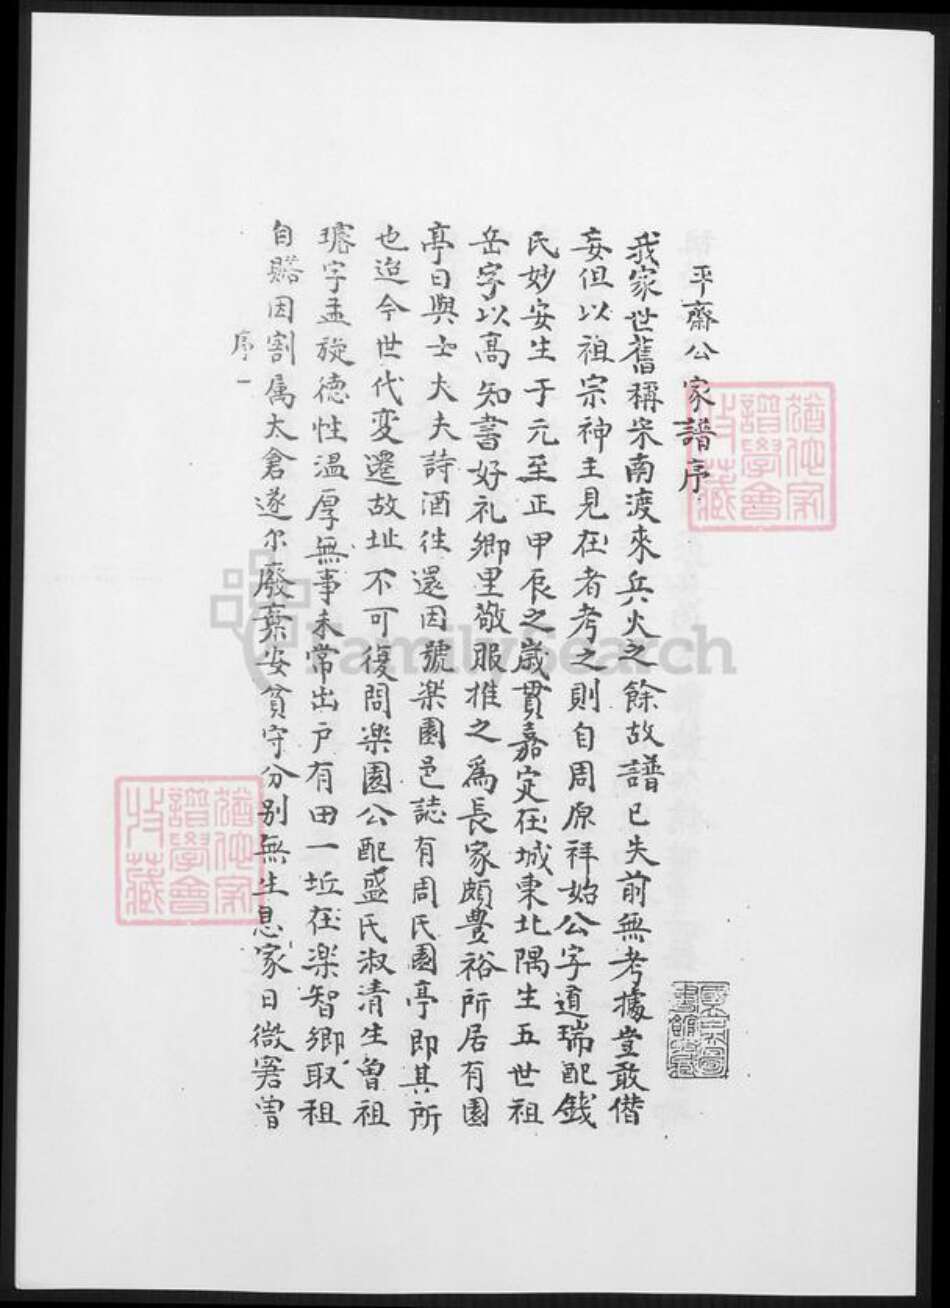 平齋公家譜序
我家世舊稱宋南渡來兵火之餘故譜已失前無考據豈敢偕
妄但以祖宗神主見在者考之則自周原祥始公字道瑞配錢
氏妙安生于元至正甲辰之歲貫嘉定在城東北隅生五世祖
岳字以高知書好礼鄉里敬服推之爲長家頗豊裕所居有園
亭日與士大夫詩酒徃還因號楽園邑誌有周氏園亭即其所
也迨今世代变遷故址不可復問楽園公配盛氏淑清生曾祖
璿字孟旋德性温厚無事未常出户有田一坵在楽智鄉取租
自賠因割属太倉遂尔廢棄安貧守分别無生息家日微窘曽
序一
猶他家
譜學會
收藏
猶他家
譜學會
收藏
FamilySearch